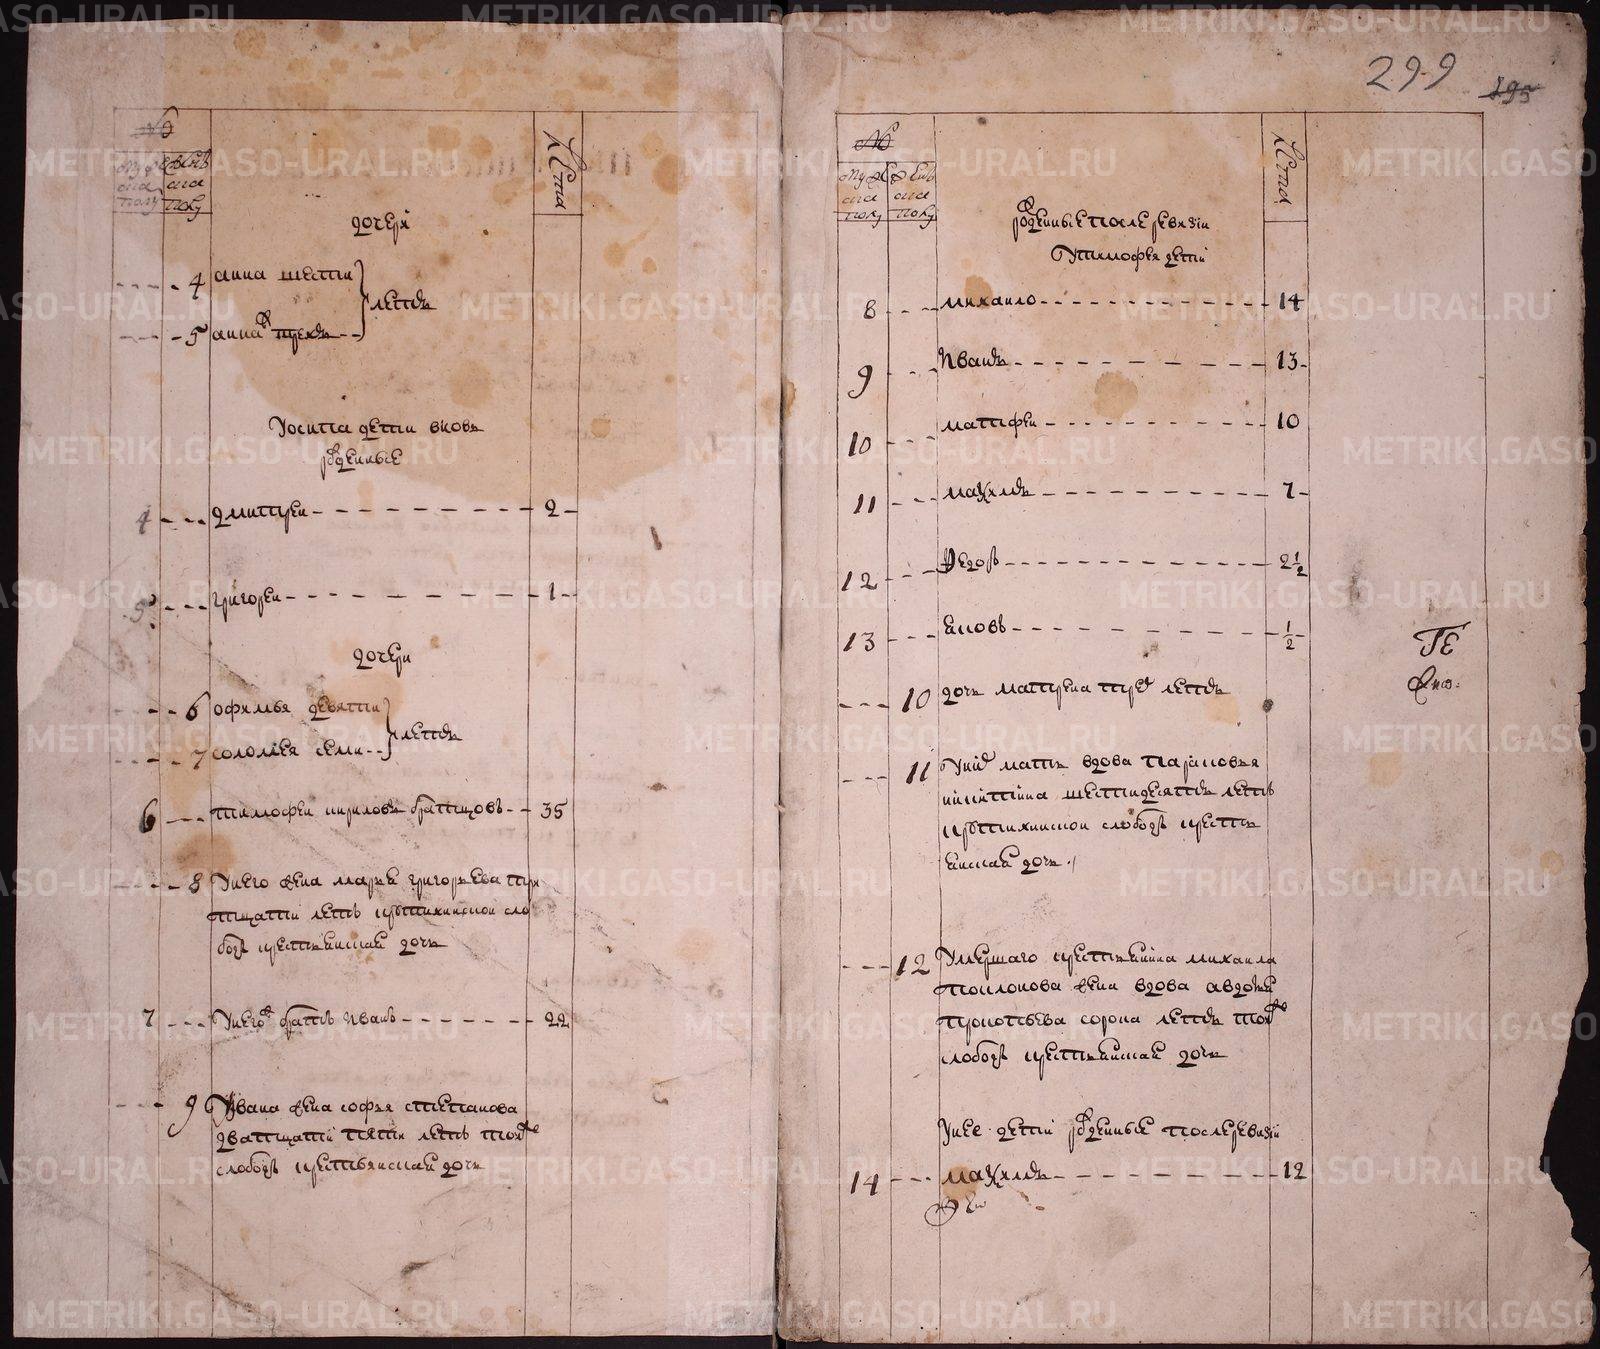 №
мужеска полу
женска полу
Лѣта
дочери
4 анна шести
лѣтъ
5 аннаж трехъ
Уосипа дѣти вновь
рожденные
4 дмитреи 2
5 григореи 1
дочери
6 офимья девяти
лѣтъ
7 соломея семи
6 тимофеи кириловъ братцовъ 35
8 Унего жена марья григорьева три
тцати летъ крутихинской сло
боды крестьянская дочь
7 Унегож братъ иванъ 22
9 Уивана жена софья степанова
дватцати пяти летъ тойже
слободы крестьянская дочь
299
295
№
мужеска полу
женска полу
Лѣта
рожденные после ревизіи
Утимофея дети
8 михаило 14
9 Иванъ 13
10 матфеи 10
11 максимъ 7
12 Егоръ 2 1/2
13 1/2
10 дочь матрена трех летъ
11 Уних мать вдова парасковья
шестидесятъ летъ
крутихинской слободы кресть
янская дочь
12 Умершаго крестьянина михаила
жена вдова авдотья
прокопьева сорока летъ тойже
слободы крестьянская дочь
Унее дети рожденные после ревизіи
14 максимъ 12